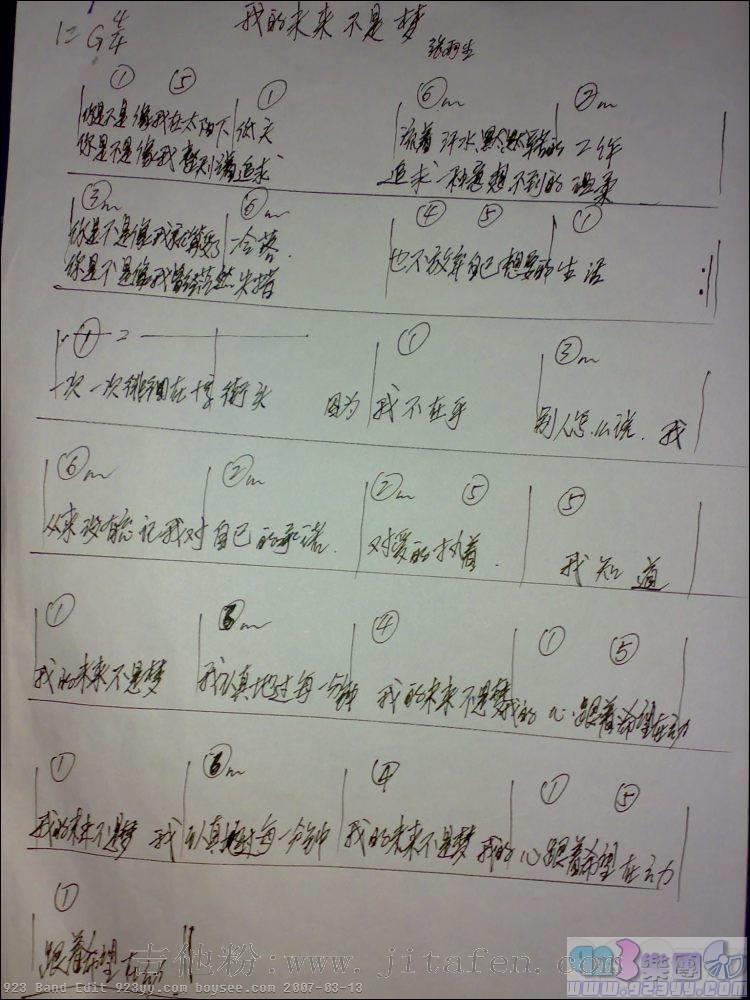 我的未来不是梦
1=G 4/4
张雨生
① ⑤ ① ⑥m ②m
你是不是像我在太阳下 低头 流着汗水默默辛苦的工作
你是不是像我整天 追求 追求一种意想不到的温柔
③m ⑥m ④ ⑤ ①
你是不是像我就算受了 冷落 也不放弃自己想要的生活
你是不是像我曾经茫然失措
① 2 ① ③m
一次一次徘徊在十字街头 因为 我不在乎 别人怎么说 我
⑥m ②m ②m ⑤ ⑤
从来没有忘记我对自己的承诺 对爱的执着 我知道
① ③m ④ ① ⑤
我的未来不是梦 我认真地过每一分钟 我的未来不是梦 我的心跟着希望在动
① ③m ④ ① ⑤
我的未来不是梦 我认真地过每一分钟 我的未来不是梦 我的心跟着希望在动
①
跟着希望在动
吉他粉:www.jitafen.com
923 Band Edit 923yy.com boysee.com 2007-03-13
樂團
www.923yy.com